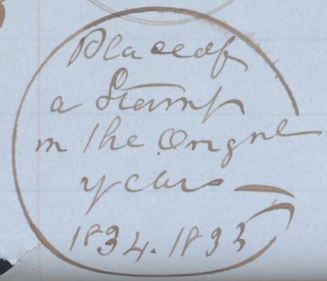 Place of
a Stamp
in the Orignl
years
1834. 1835